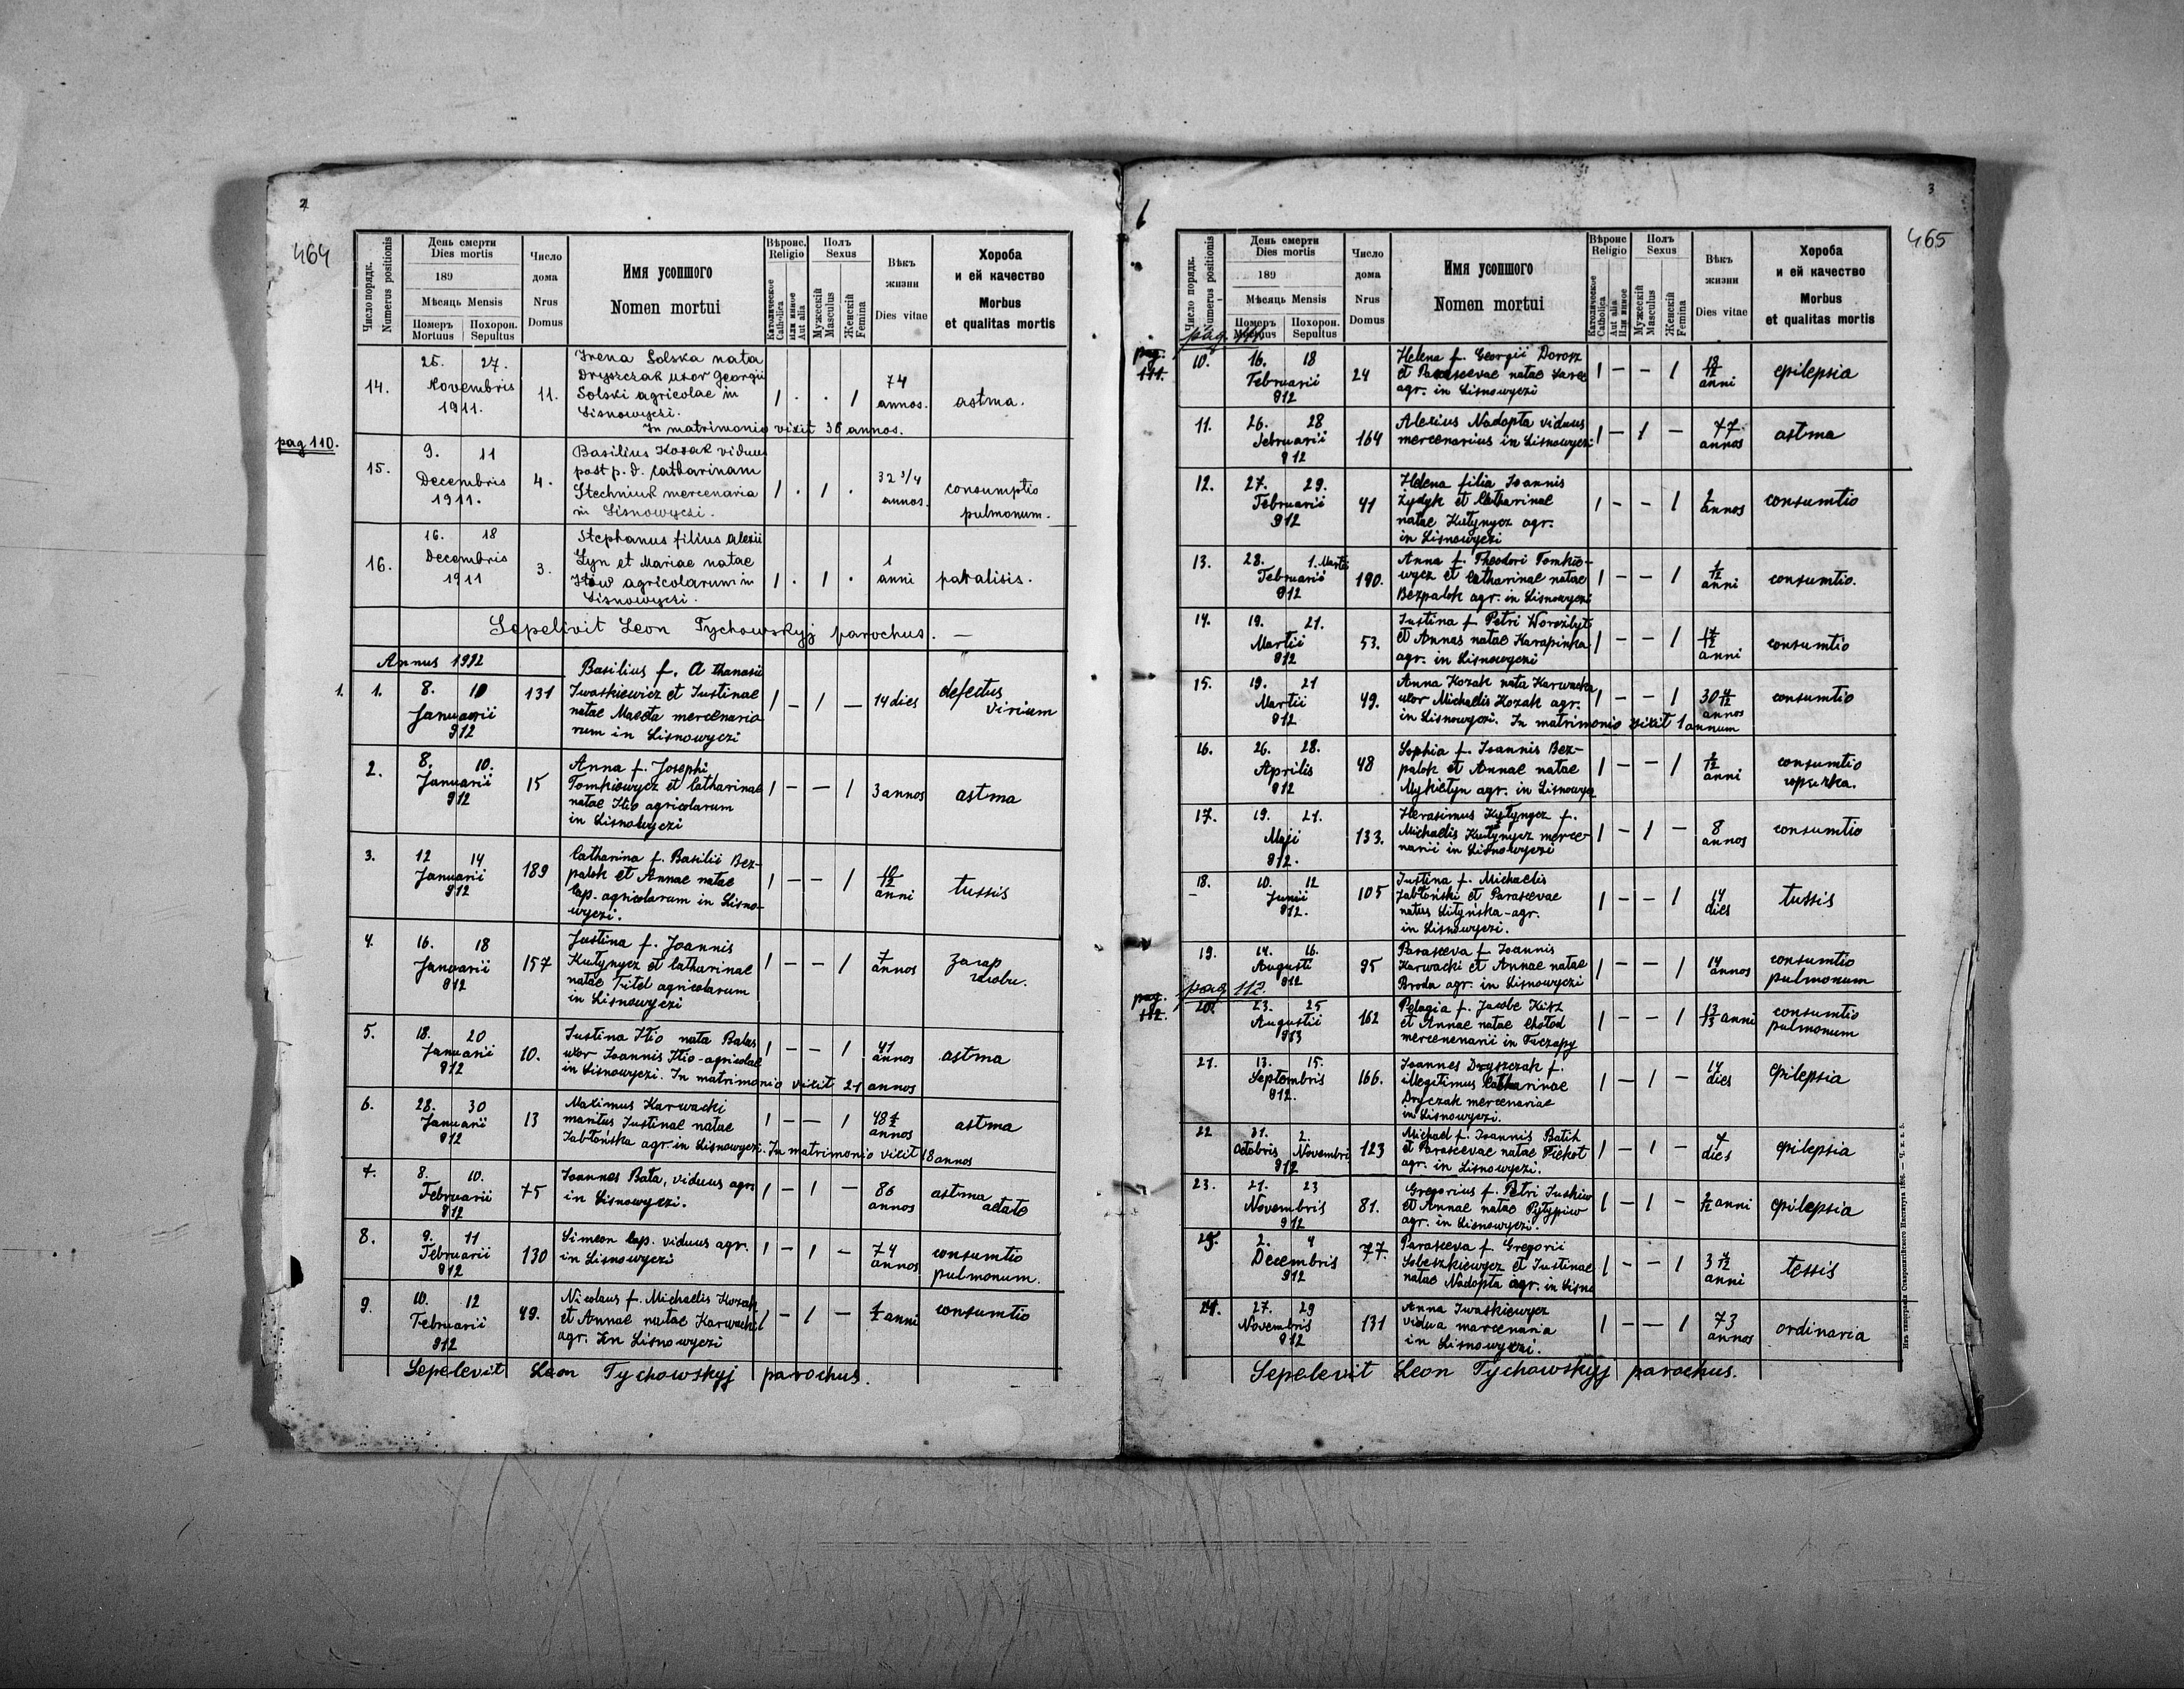 2
464
Число порядк.
Numerus positionis
День смерти
Dies mortis
189
Мѣсяць Mensis
Померъ
Mortuus
Похорон.
Sepultus
Число
дома
Nrus
Domus
Имя усопшого
Nomen mortui
Вѣроис.
Religio
Католическое
Catholica
Или инное
Aut alia
Полъ
Sexus
Мужескій
Masculus
Женскій
Femina
Вѣкъ
жизни
Dies vitae
Хороба
и ей качество
Morbus
et qualitas mortis
14. 27. Novembris 1911. 11.
Irena Solska nata
Dryszczak uxor Georgii
Solski agricolae in
Lisnowyczi.
In matrimonio vixit 36 annos.
74 annos. astma.
pag 110.
15. 9. 11 Decembris 1911. 4.
Basilius Kozak viduus
post p. d. Catharinam
Stechniuk mercenaria
in Lisnowyczi.
32 3/4 annos. consumptio pulmonum.
16. 16. 18 Decembris 1911 3.
Stephanus filius Alexii
Łyn et Mariae natae
agricolarum in
Lisnowyczi.
1 anni paralisis.
Sepelivit Leon Tychowskyj parochus. —
Annus 1912
1. 1. 8. 10 Januarii 912 131
Basilius f. Athanasii
Iwaskiewicz et Iustinae
natae mercenario
rum in Lisnowyczi
14 dies defectus virium
2. 8. 10. Januarii 912 15
Anna f. Josephi
Tomkiewycz et Catharinae
natae Itio agricolarum
in Lisnowyczi
3 annos astma
3. 12 14 Januarii 912 189
Catharina f. Basilii Bez-
palok et Annae natae
Cap. agricolarum in Lisno-
wyczi.
10/12 anni tussis
4. 16. 18 Januarii 912 157
Justina f. Joannis
Kutynycz et Catharinae
natae Tritel agricolarum
in Lisnowyczi
7 annos
5. 18. 20 Januarii 912 10.
Iustina Itio nata
uxor Ioannis Itio-agricolae
in Lisnowyczi. In matrimonio vixit 21 annos
41 annos astma
6. 28. 30 Januarii 912 13
Maximus Karwacki
maritus Iustinae natae
Jabłońska agr. in Lisnowyczi. In matrimonio vixit 18 annos
annos astma
7. 8. 10. Februarii 912 75
Ioannes Bata, viduus agr.
in Lisnowyczi.
86 annos astma aetate
8. 9. 11 Februarii 912 130
Simeon Cap. viduus agr.
in Lisnowyczi
74 annos consumtio pulmonum.
9. 10. 12 Februarii 912 49.
Nicolaus f. Michaelis Kozak
et Annae natae Karwacki
agr. in Lisnowyczi
anni consumtio
Sepelevit Leon Tychowskyj parochus.
3
465
Число порядк.
Numerus positionis
День смерти
Dies mortis
189
Мѣсяць Mensis
Померъ
Mortuus
Похорон.
Sepultus
Число
дома
Nrus
Domus
Имя усопшого
Nomen mortui
Вѣроис
Religio
Католическое
Catholica
Aut alia
Или инное
Полъ
Sexus
Мужескій
Masculus
Женскій
Femina
Вѣкъ
жизни
Dies vitae
Хороба
и ей качество
Morbus
et qualitas mortis
pag. 111.
10. 16. 18 Februarii 912 24
Helena f. Georgii Dorosz
et Parascevae natae
agr. in Lisnowyczi
anni epilepsia
11. 26. 28 Februarii 912 164
Alexius Nadopta viduus
mercenarius in Lisnowyczi
77 annos astma
12. 27. 29. Februarii 912 41
Helena filia Ioannis
Zydyk et Catharinae
natae Kutynycz agr.
in Lisnowyczi
2 annos consumtio
13. 28. 1. Martii Februarii 912 190.
Anna f. Theodori Tomkie-
wycz et Catharinae natae
Bezpalok agr. in Lisnowyczi
1/12 anni consumtio.
14. 19. 21. Martii 912 53.
Iustina f Petri Worozbyt
et Annae natae Karapinka
agr. in Lisnowyczi
anni consumtio
15. 19. 21 Martii 912 49.
Anna Kozak nata Karwacka
uxor Michaelis Kozak agr.
in Lisnowyczi. In matrimonio vixit 1 annum
30 4/12 annos consumtio
16. 26. 28. Aprilis 912 48
Sophia f. Ioannis Bez-
palok et Annae natae
Mykietyn agr. in Lisnowycz
anni consumtio
17. 19. 21. Maji 912. 133.
Herasimus Kutynycz f.
Michaelis Kutynycz merce-
narii in Lisnowyczi
8 annos consumtio
18. 10. 12 Junii 912. 105
Iustina f. Michaelis
Jabłoński et Parascevae
natus Lityńska-agr.
in Lisnowyczi.
14 dies tussis
19. 14. 16. Augusti 912 95
Parasceva f. Ioannis
Karwacki et Annae natae
Broda agr. in Lisnowyczi
14 annos consumtio pulmonum
pag. 112.
20. 23. 25 Augustii 913 162
Pelagia f. Jacobe Kisz
et Annae natae Chołod
mercenenarii in Tuczapy
anni consumtio pulmonum
21. 13. 15. Septembris 912. 166.
Ioannes Dryszczak f.
illegitimus Catharinae
Dryczak mercenariae
in Lisnowyczi.
14 dies epilepsia
22 31. 2. Octobris Novembri 912 123
Michael f. Ioannis Batih
et Parascevae natae Pichot
agr. in Lisnowyczi.
7 dies epilepsia
23. 21. 23 Novembris 912 81.
Gregorius f. Petri Iuskiw
et Annae natae Pytypiw
agr. in Lisnowyczi.
anni epilepsia
2. 4 Decembris 912 77.
Parasceva f. Gregorii
Sobeszkiewycz et Iustinae
natae Nadopta agr. in Lisno
anni tessis
24. 27. 29 Novembris 912 131
Anna Iwaskiewycz
vidua marcenaria
in Lisnowyczi.
73 annos ordinaria
Sepelevit Leon Tychowskyj parochus.